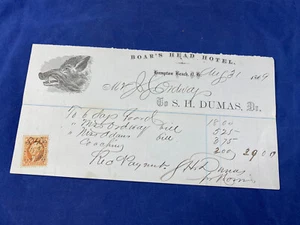 BOAR'S HEAD HOTEL,
Hampton Beach, N. H. Aug 31 1869
Mr J. J. Ordway
To S. H. DUMAS, Dr.
To 6 days Board 18.00
" Miss Ordway bill 5.25
" Miss Adams bill 3.75
Coaching 2.00 29.00
Rec Paymt S H Dumas